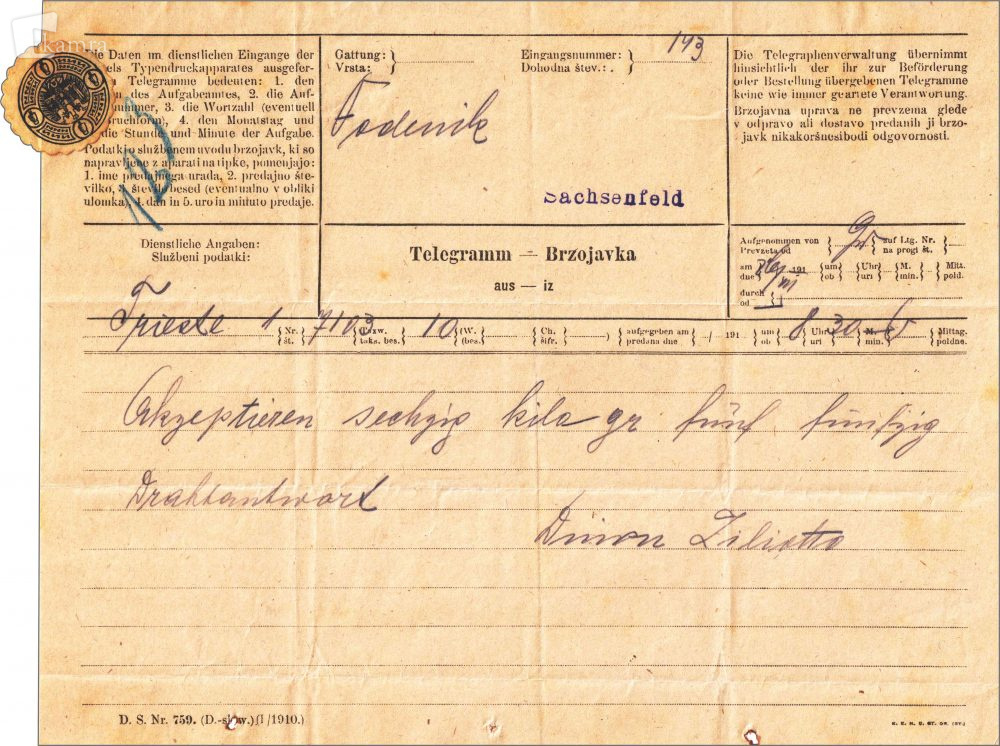 kamra
Die Daten im dienstlichen Eingange der
Typendruckapparates ausgefer-
Telegramme bedeuten: 1. den
des Aufgabeamtes, 2. die Auf-
nummer, 3. die Wortzahl (eventuell
), 4. den Monatstag und
die Stunde und Minute der Aufgabe.
Podatki službenem uvodu brzojavk, ki so
napravljene z aparati na tipke, pomenjajo:
1. ime predajnega urada, 2. predajno šte-
vilko, 3. število besed (eventualno v obliki
ulomka), 4. dan in 5. uro in minuto predaje.
Gattung:
Vrsta:
Eingangsnummer:
Dohodna štev.:
143
Sachsenfeld
Die Telegraphenverwaltung übernimmt
hinsichtlich der ihr zur Beförderung
oder Bestellung übergebenen Telegramme
keine wie immer geartete Verantwortung.
Brzojavna uprava ne prevzema glede
v odpravo ali dostavo predanih ji brzo-
javk nikakoršnesibodi odgovornosti.
Dienstliche Angaben:
Službeni podatki:
Telegramm — Brzojavka
aus — iz
Aufgenommen von auf Ltg. Nr.
Prevzeta od na progi št.
am 191 um Uhr M. Mitt.
dne ob uri min. pold.
durch
od
Trieste 1 Nr. 7103 Taxw. 10 (W. Ch. ) aufgegeben am / 191 um 8 Uhr 30 M. Mittag.
št. taks. bes. (bes. šifr. predana dne ob uri min. poldne.
Akzeptieren sechzig kilo gr fünf fünfzig
Drahtantwort
Ziliotto
D. S. Nr. 759. (D.-slow.) (I/1910.)